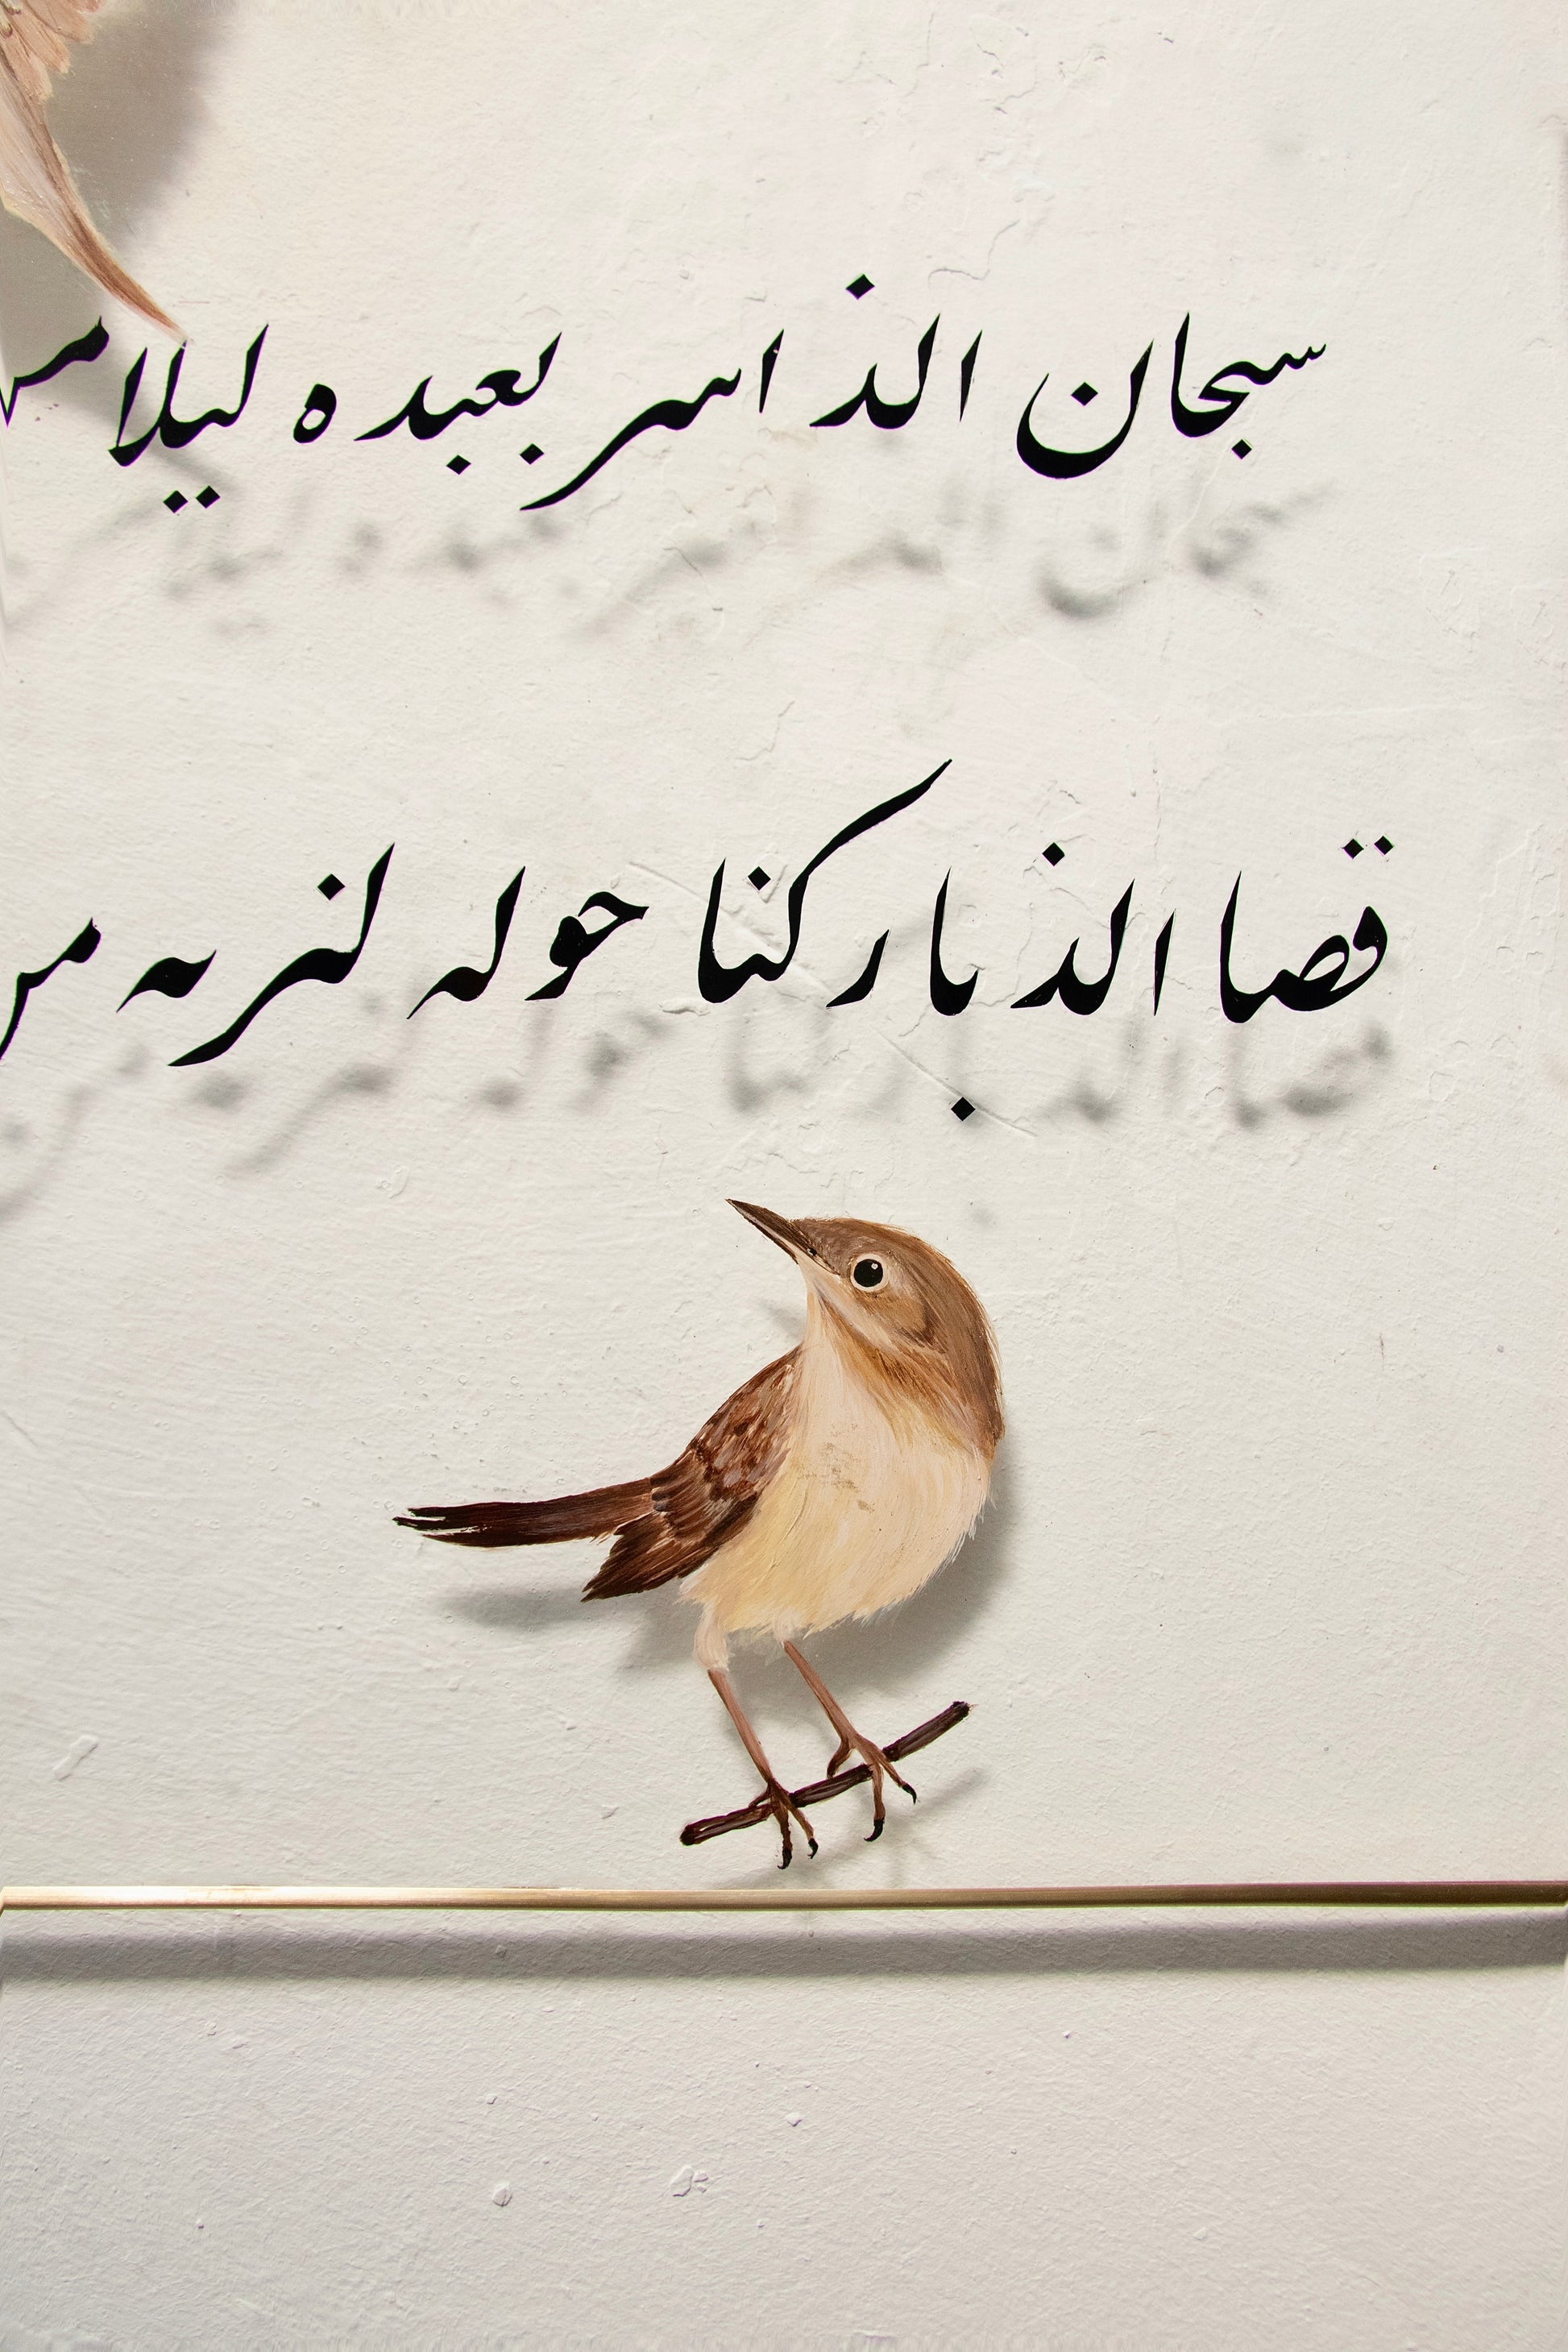 سبحان الذ اسر بعبده ليلا
قصا الذ باركنا حوله لنريه